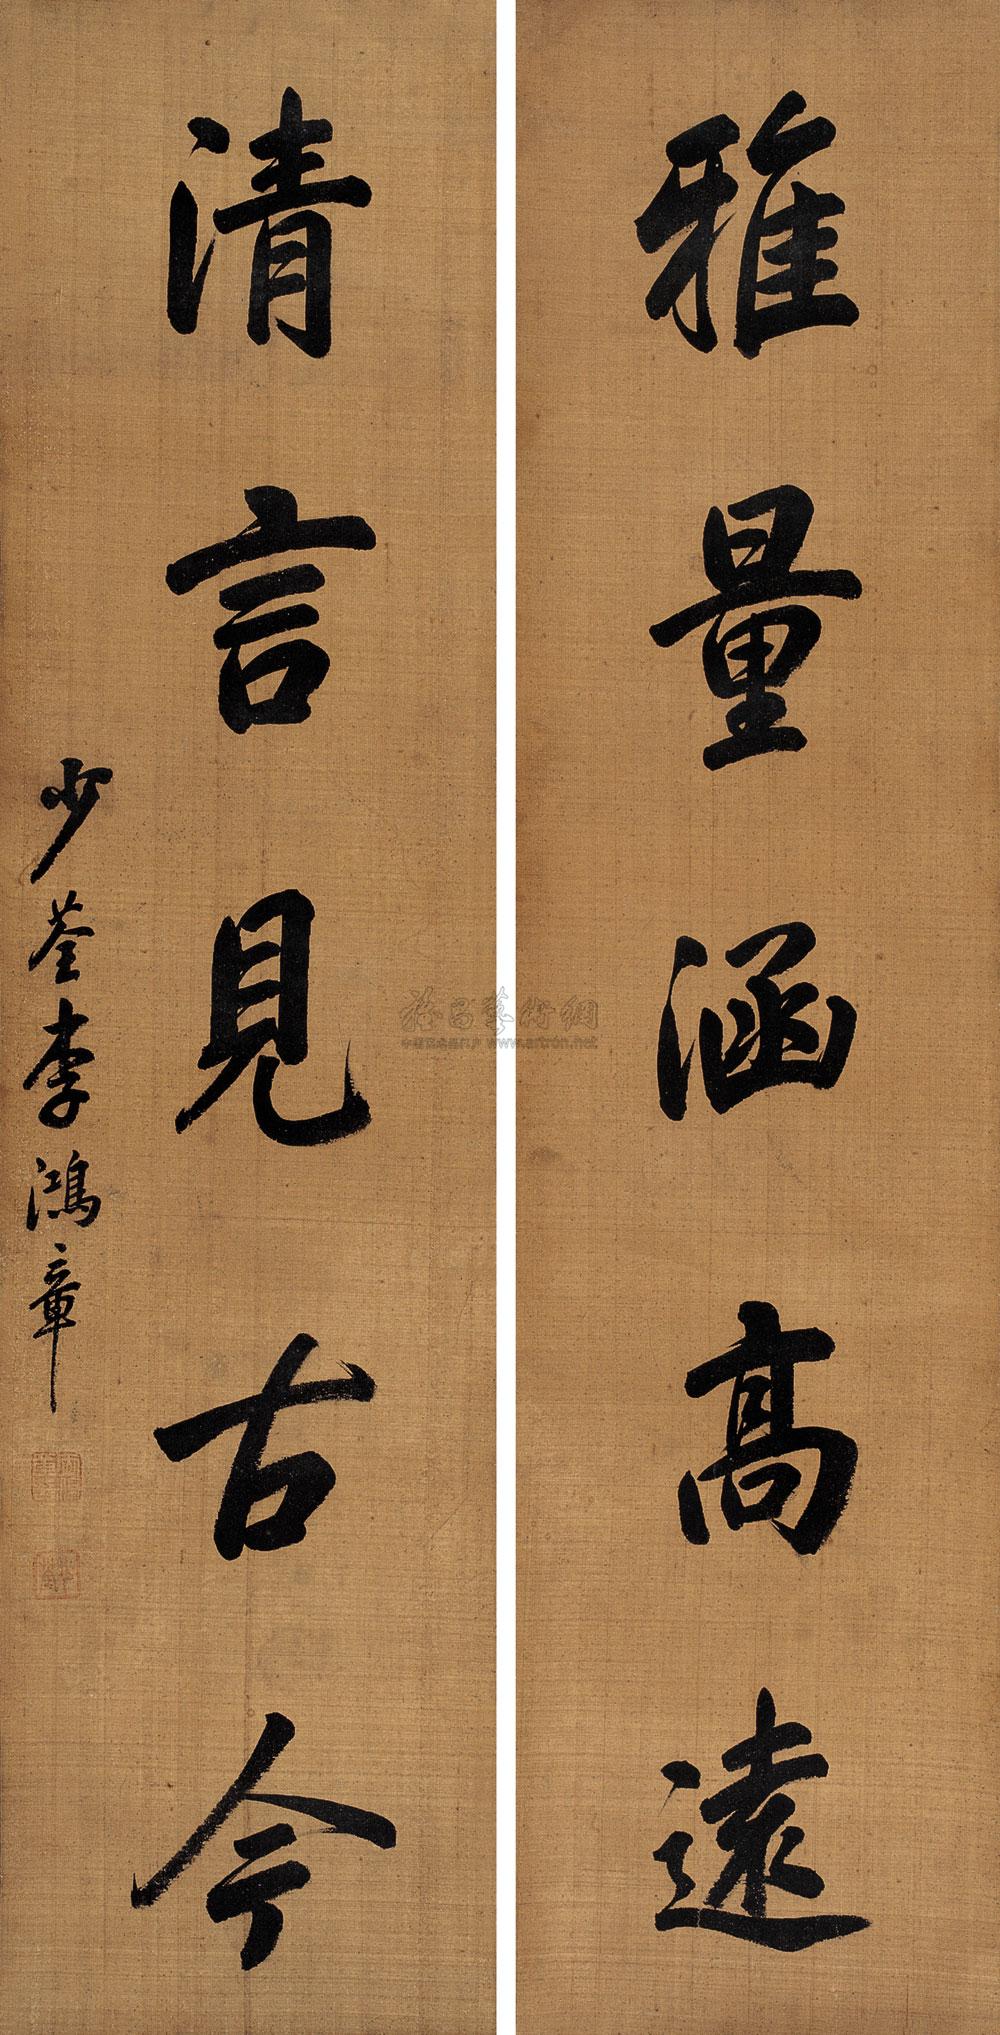 雅量涵高遠
清言見古今
少荃李鴻章
雅昌藝術網
www.artron.net